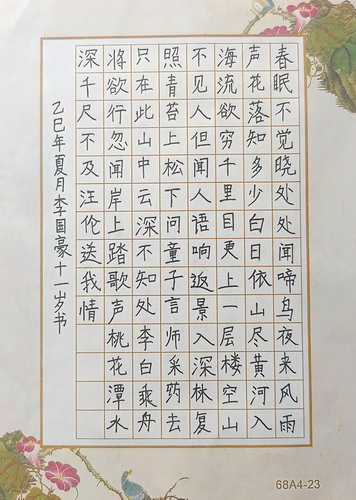 春眠不觉晓处处闻啼鸟夜来风雨
声花落知多少白日依山尽黄河入
海流欲穷千里目更上一层楼空山
不见人但闻人语响返景入深林复
照青苔上松下问童子言师采药去
只在此山中云深不知处李白乘舟
将欲行忽闻岸上踏歌声桃花潭水
深千尺不及汪伦送我情
乙巳年夏月李国豪十一岁书
68A4-23